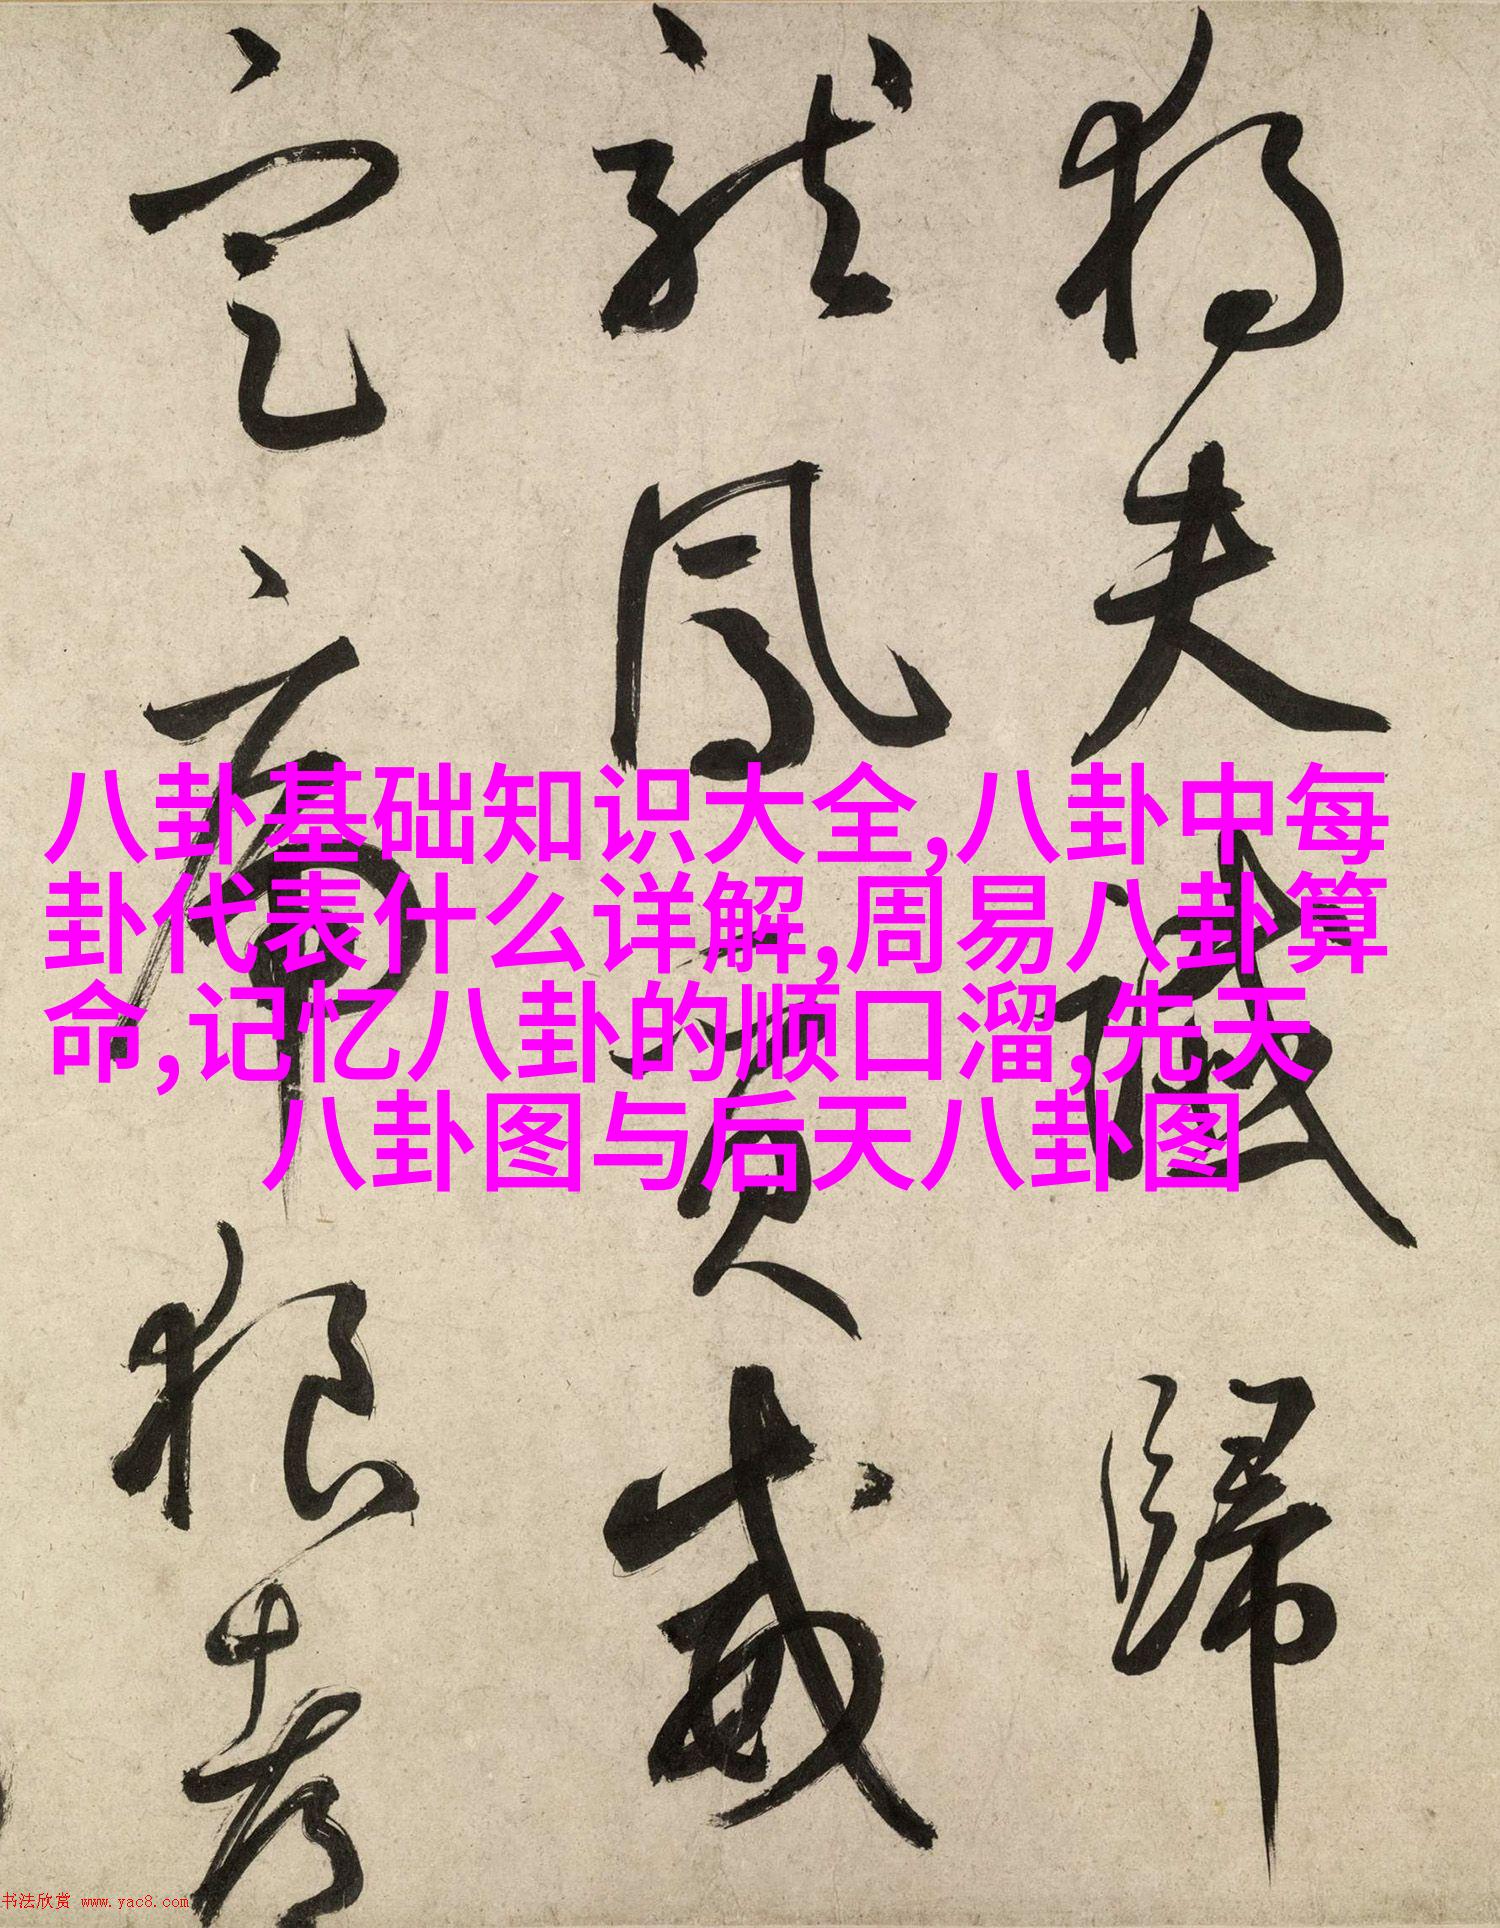 八卦基础知识大全,八卦中每
卦代表什么详解,周易八卦算
命,记忆八卦的顺口溜,先天
八卦图与后天八卦图
獨夫讖歸
龍鳳質威
定虎狼都
书法欣赏 www.yac8.com